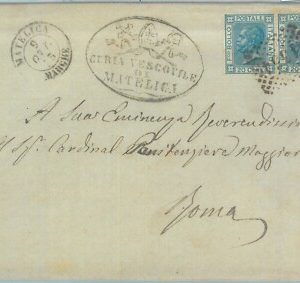 MATELICA
9
OTT
MARCHE
CURIA VESCOVILE
DI
MATELICA
POSTALE
20 C
A Sua Eminenza Reverendissima
Il Sig. Cardinal Penitenziere Maggiore
Roma